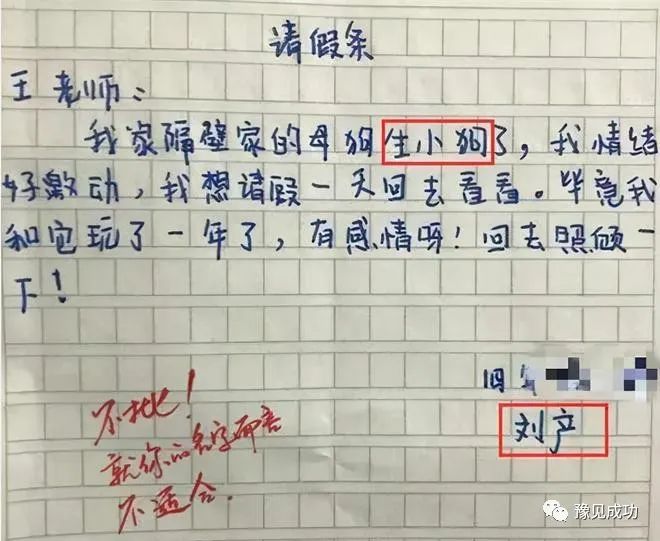 请假条
王老师：
我家隔壁家的母狗生小狗了，我情绪
好激动，我想请假一天回去看看。毕竟我
和它玩了一年了，有感情呀！回去照顾一
下！
刘产
不批！
就你的名字而言
不适合.
豫见成功